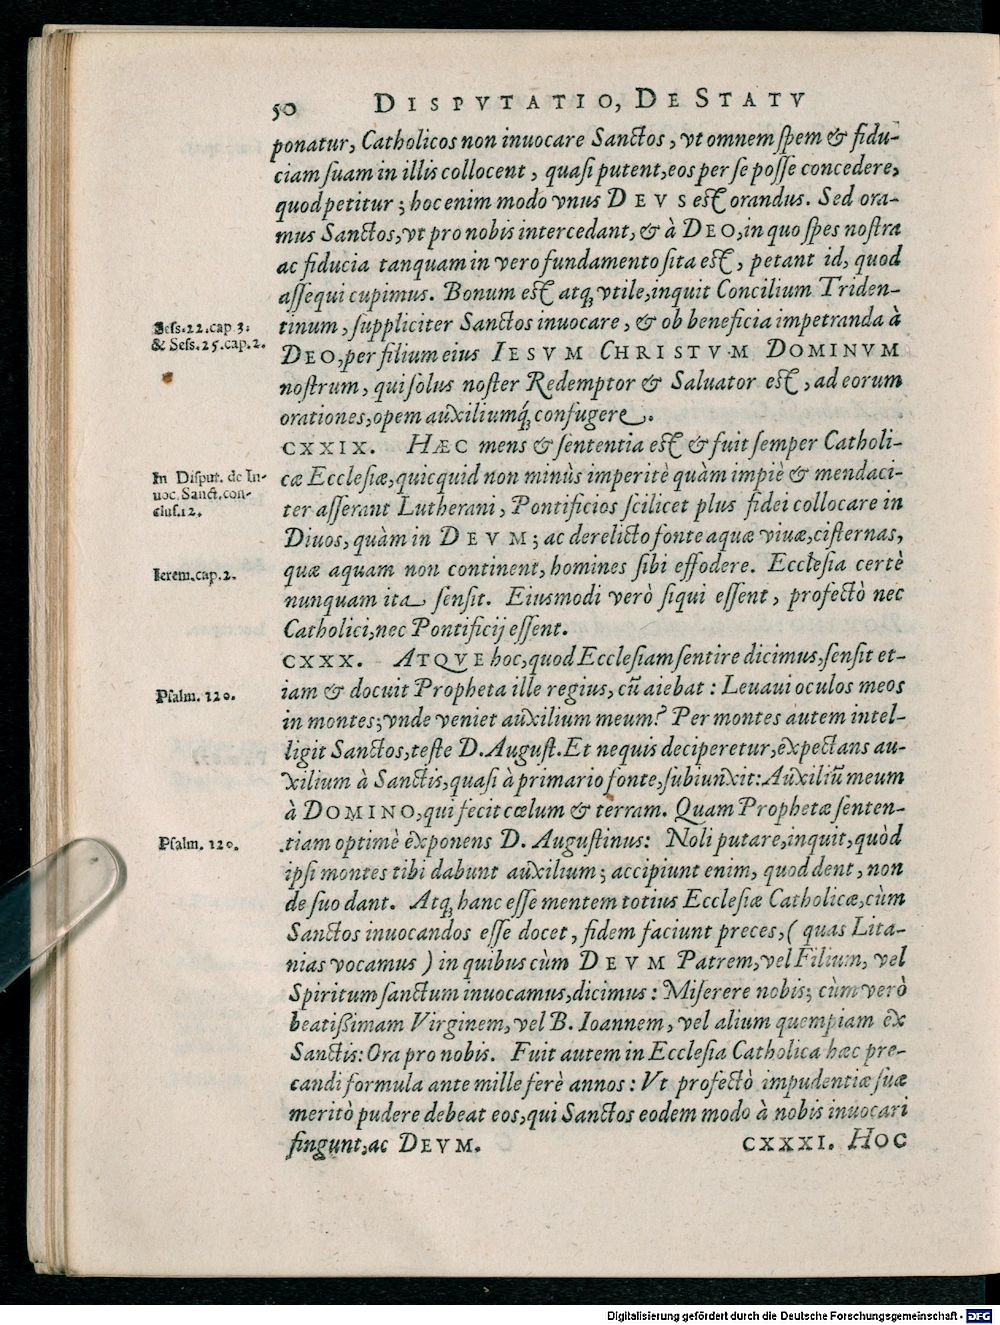 50 DISPVTATIO, DE STATV
ponatur, Catholicos non inuocare Sanctos, vt omnem spem & fidu-
ciam suam in illis collocent, quasi putent, eos per se posse concedere,
quod petitur; hoc enim modo vnus DEVS est orandus. Sed ora-
mus Sanctos, vt pro nobis intercedant, & à DEO, in quo spes nostra
ac fiducia tanquam in vero fundamento sita est, petant id, quod
assequi cupimus. Bonum est atq; vtile, inquit Concilium Triden-
Sess. 22. cap. 3.
& Sess. 25. cap. 2.
tinum, suppliciter Sanctos inuocare, & ob beneficia impetranda à
DEO, per filium eius IESVM CHRISTVM DOMINVM
nostrum, qui solus noster Redemptor & Saluator est, ad eorum
orationes, opem auxiliumq́; confugere.
CXXIX. HÆC mens & sententia est & fuit semper Catholi-
In Disput. de In-
uoc. Sanct. con-
clus. 12.
cæ Ecclesiæ, quicquid non minùs imperitè quàm impiè & mendaci-
ter asserant Lutherani, Pontificios scilicet plus fidei collocare in
Diuos, quàm in DEVM; ac derelicto fonte aquæ viuæ, cisternas,
Ierem. cap. 2.
quæ aquam non continent, homines sibi effodere. Ecclesia certè
nunquam ita sensit. Eiusmodi verò siqui essent, profectò nec
Catholici, nec Pontificij essent.
CXXX. ATQVE hoc, quod Ecclesiam sentire dicimus, sensit et-
Psalm. 120.
iam & docuit Propheta ille regius, cũ aiebat: Leuaui oculos meos
in montes; vnde veniet auxilium meum? Per montes autem intel-
ligit Sanctos, teste D. August. Et nequis deciperetur, expectans au-
xilium à Sanctis, quasi à primario fonte, subiunxit: Auxiliũ meum
à DOMINO, qui fecit cœlum & terram. Quam Prophetæ senten-
Psalm. 120.
tiam optimè exponens D. Augustinus: Noli putare, inquit, quòd
ipsi montes tibi dabunt auxilium; accipiunt enim, quod dent, non
de suo dant. Atq; hanc esse mentem totius Ecclesiæ Catholicæ, cùm
Sanctos inuocandos esse docet, fidem faciunt preces, (quas Lita-
nias vocamus) in quibus cùm DEVM Patrem, vel Filium, vel
Spiritum sanctum inuocamus, dicimus: Miserere nobis; cùm verò
beatißimam Virginem, vel B. Ioannem, vel alium quempiam ex
Sanctis: Ora pro nobis. Fuit autem in Ecclesia Catholica hæc pre-
candi formula ante mille ferè annos: Vt profectò impudentiæ suæ
meritò pudere debeat eos, qui Sanctos eodem modo à nobis inuocari
fingunt, ac DEVM. CXXXI. HOC
Digitalisierung gefördert durch die Deutsche Forschungsgemeinschaft - DFG